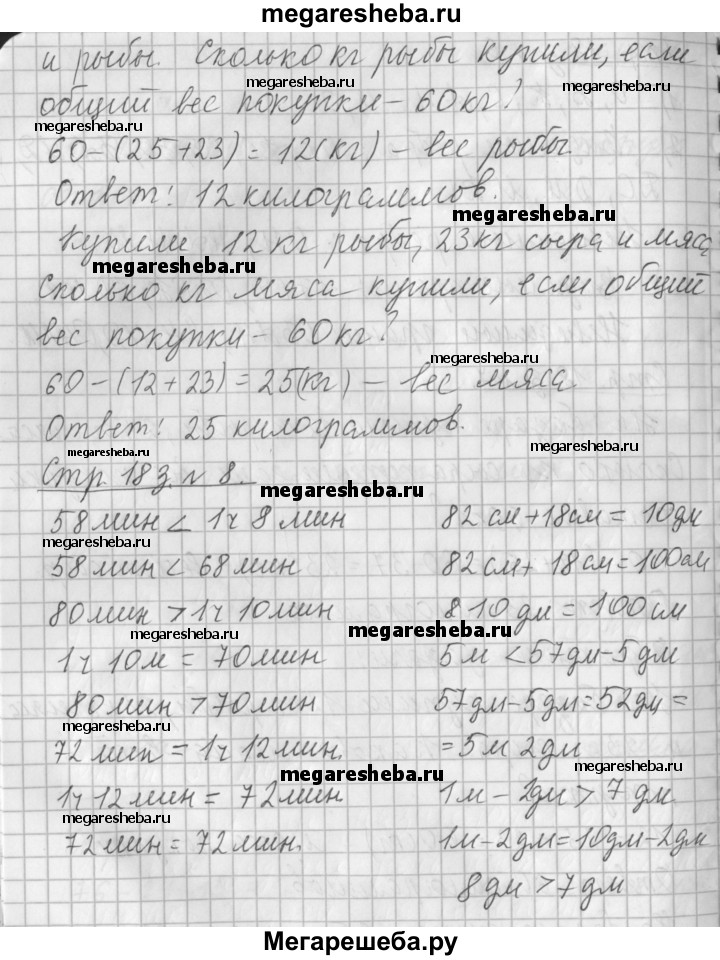 megaresheba.ru
и рыбы. Сколько кг рыбы купили, если
megaresheba.ru
megaresheba.ru
общий вес покупки – 60 кг?
megaresheba.ru
60-(25+23) = 12(кг) – вес рыбы
Ответ: 12 килограммов.
megaresheba.ru
Купили 12 кг рыбы, 23 кг сыра и мяса
megaresheba.ru
Сколько кг мяса купили, если общий
вес покупки – 60 кг?
megaresheba.ru
60-(12+23) = 25(кг) – вес мяса
Ответ: 25 килограммов.
megaresheba.ru
Стр. 18 з. № 8.
megaresheba.ru
58 мин < 1ч 8 мин
megaresheba.ru
58 мин < 68 мин
80 мин > 1ч 10 мин
megaresheba.ru
1ч 10м = 70 мин
80 мин > 70 мин
megaresheba.ru
72 мин = 1ч 12 мин.
1ч 12 мин = 72 мин.
megaresheba.ru
72 мин = 72 мин.
82 см + 18 см = 10 дм
megaresheba.ru
82 см + 18 см = 100 см
810 дм = 100 см
megaresheba.ru
5 м < 57 дм – 5 дм
57 дм – 5 дм = 52 дм =
= 5 м 2 дм
megaresheba.ru
megaresheba.ru
1 м – 2 дм > 7 дм
1 м – 2 дм = 10 дм – 2 дм
8 дм > 7 дм
Мегарешеба.ру